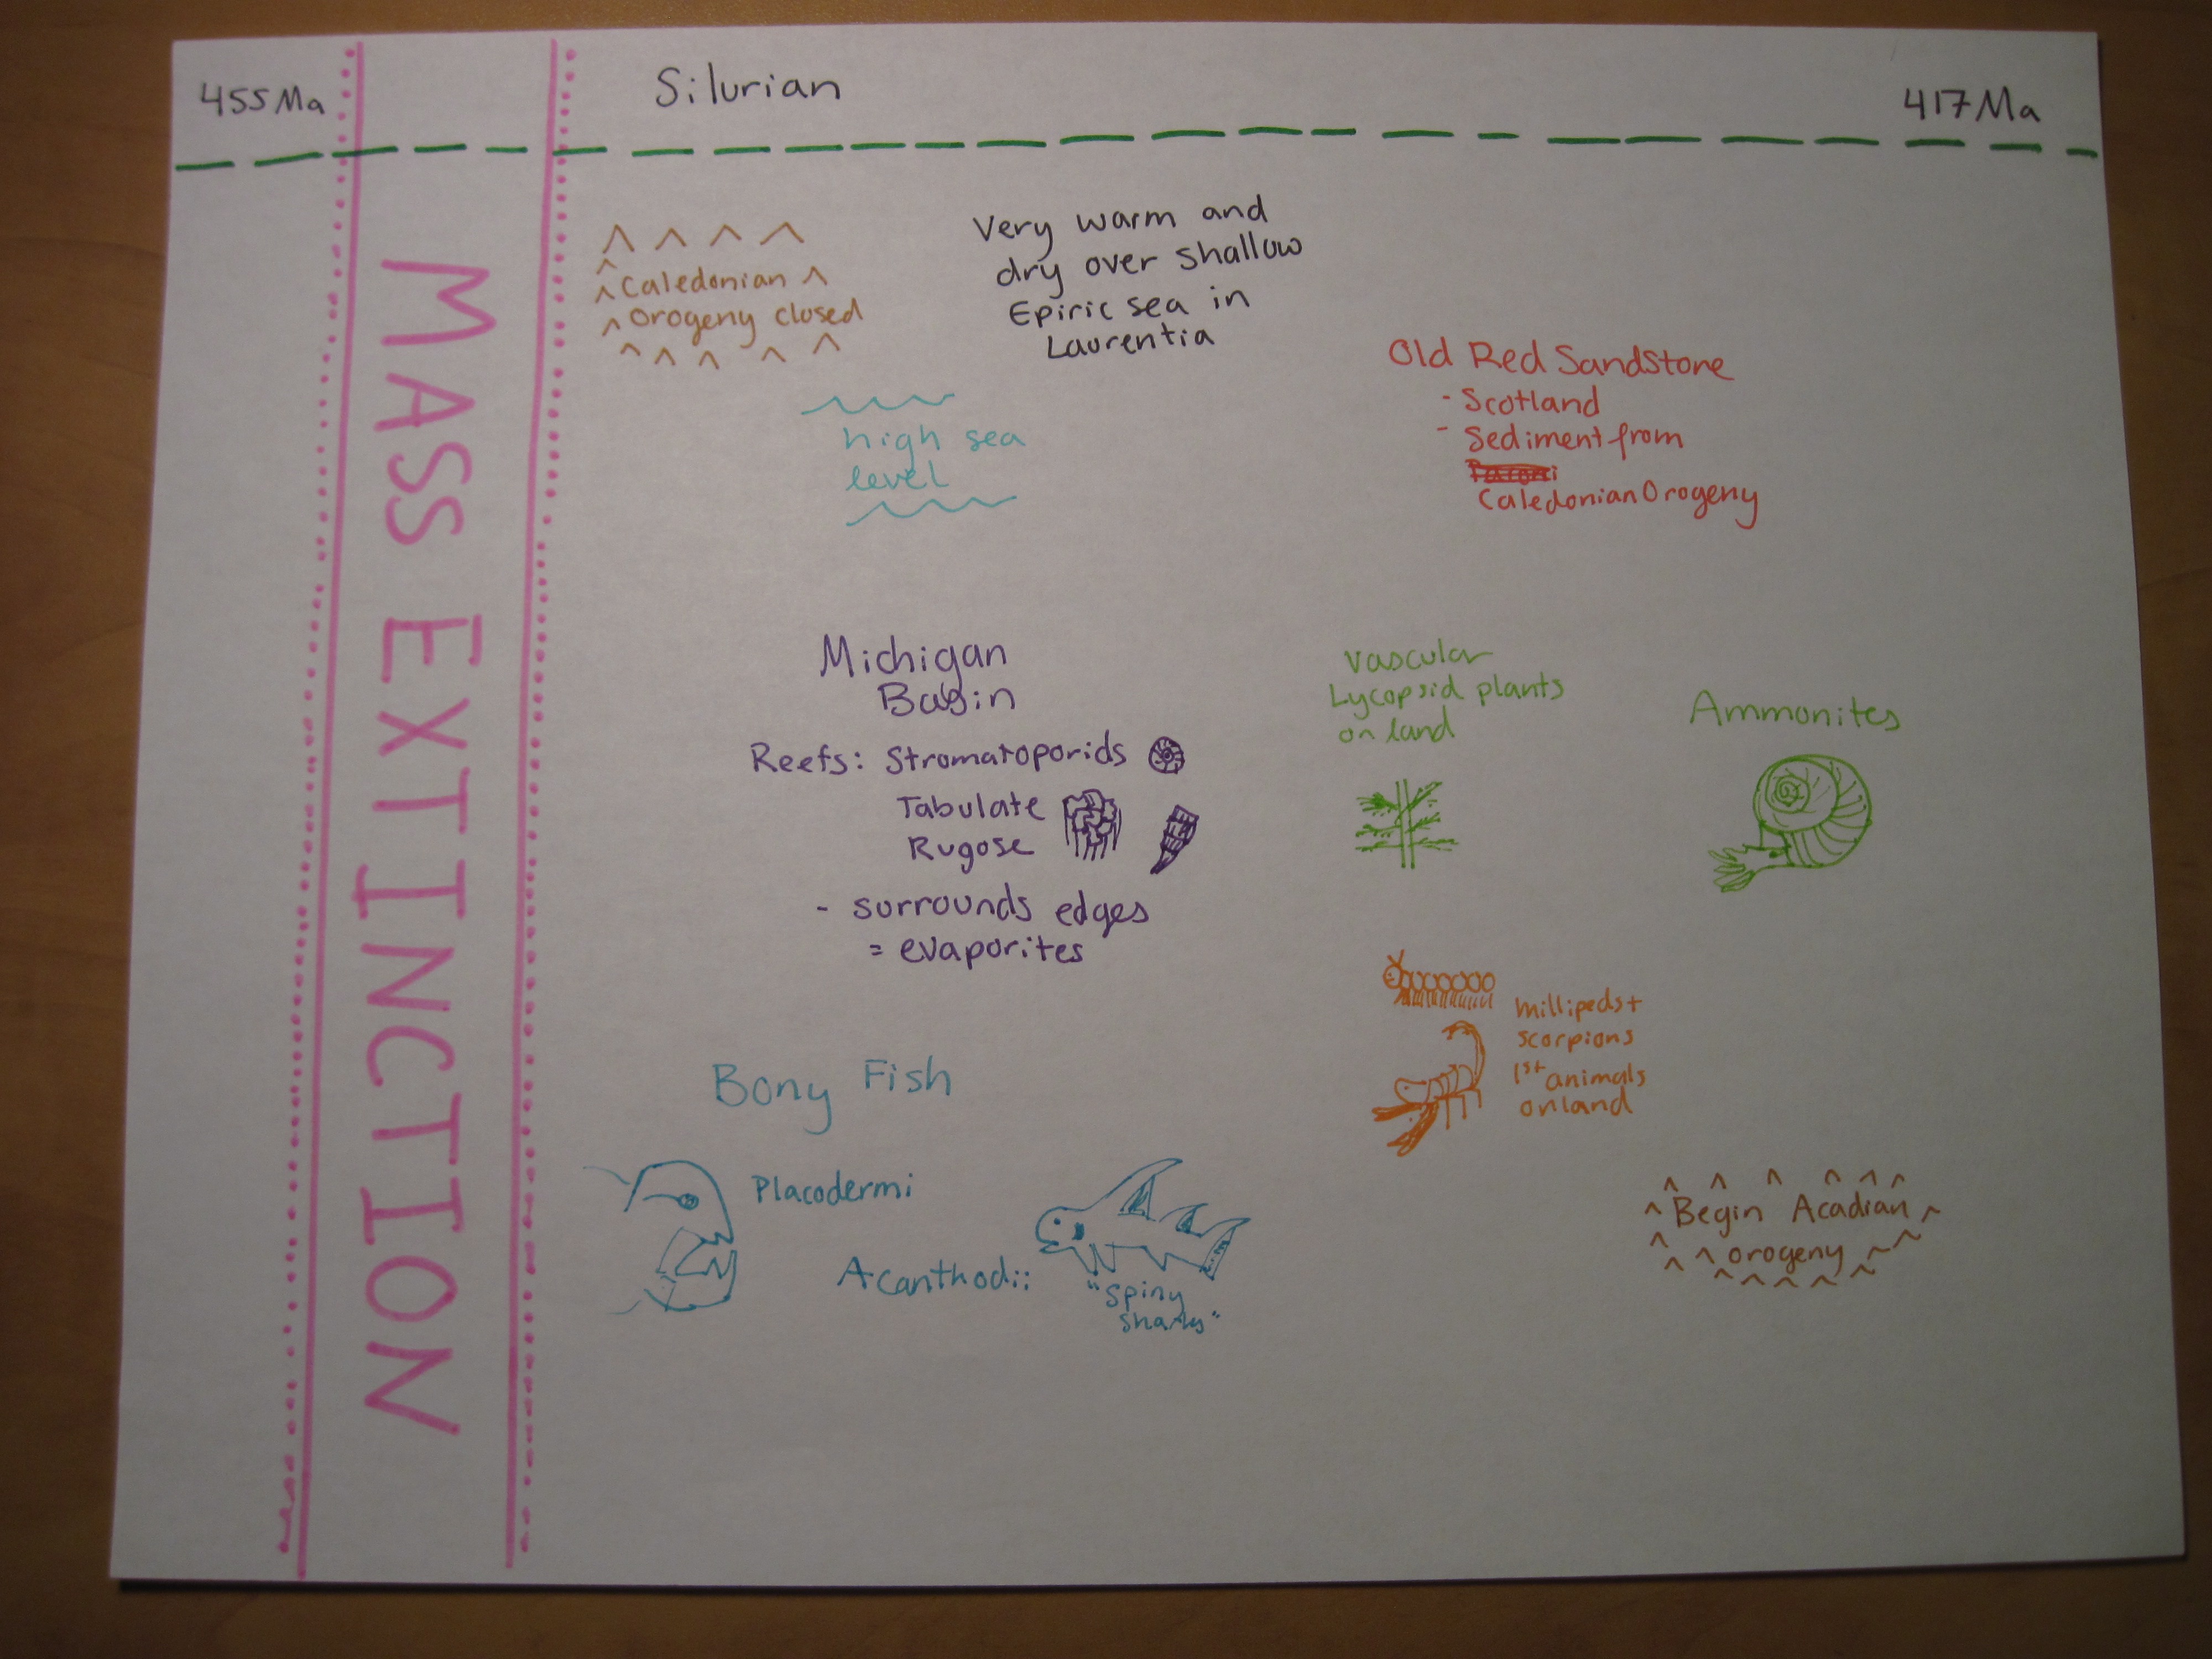 455 Ma
Silurian
417 Ma
MASS EXTINCTION
Caledonian
Orogeny closed
Very warm and
dry over shallow
Epiric sea in
Laurentia
high sea
level
Old Red Sandstone
- Scotland
- Sediment from
Caledonian Orogeny
Michigan
Basin
Reefs: Stromatoporids
Tabulate
Rugose
- surrounds edges
= evaporites
Vascular
Lycopsid plants
on land
Ammonites
millipeds +
scorpions
1st animals
on land
Bony Fish
Placodermi
Acanthodii
"Spiny
sharks"
Begin Acadian
orogeny